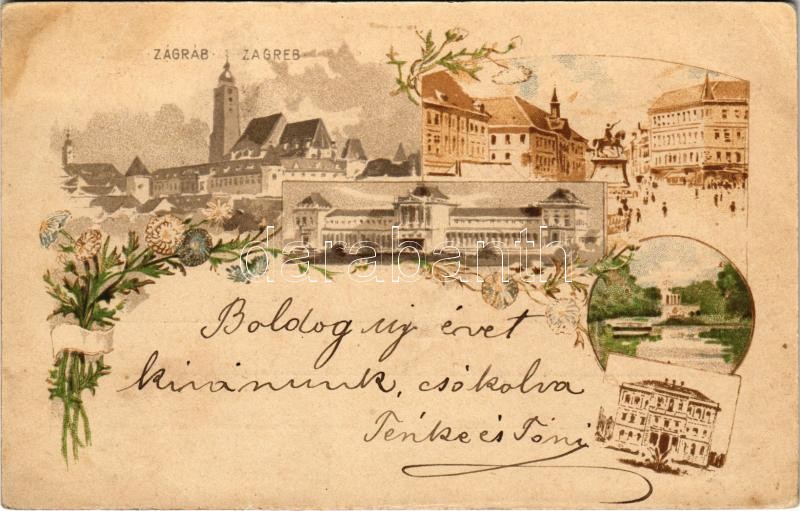 ZÁGRÁB ZAGREB
Boldog uj évet
kivánunk, csókolva
Ténke és Tóni
darabanth